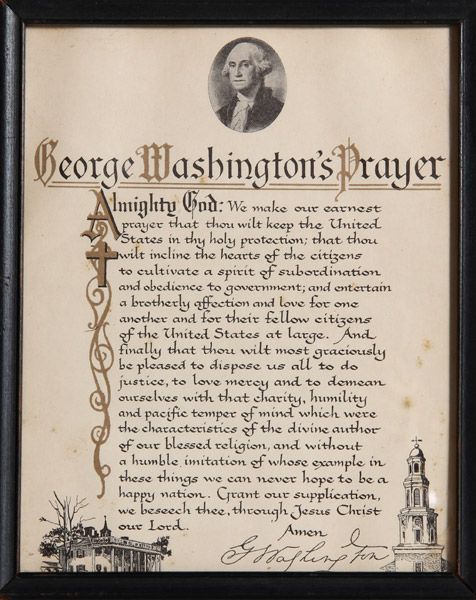 George Washington's Prayer
Almighty God: We make our earnest
prayer that thou wilt keep the United
States in thy holy protection; that thou
wilt incline the hearts of the citizens
to cultivate a spirit of subordination
and obedience to government; and entertain
a brotherly affection and love for one
another and for their fellow citizens
of the United States at large. And
finally that thou wilt most graciously
be pleased to dispose us all to do
justice, to love mercy and to demean
ourselves with that charity, humility
and pacific temper of mind which were
the characteristics of the divine author
of our blessed religion, and without
a humble imitation of whose example in
these things we can never hope to be a
happy nation. Grant our supplication,
we beseech thee, through Jesus Christ
our Lord. Amen
G Washington